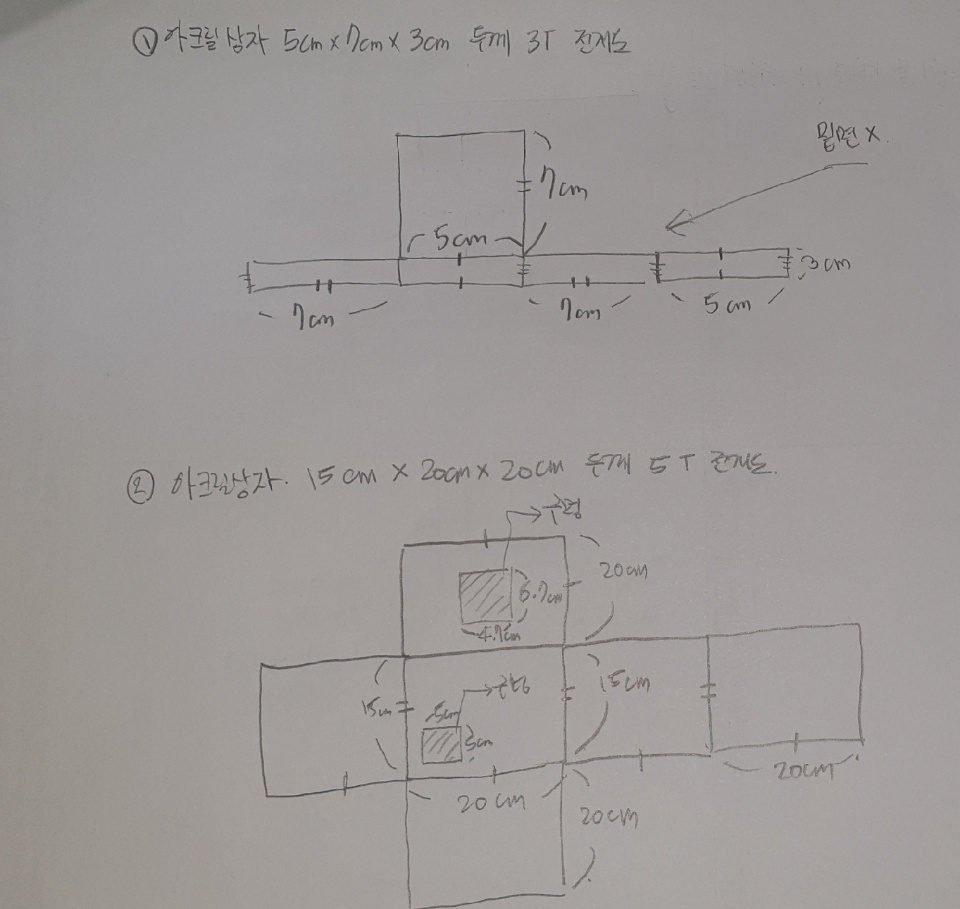 ① 아크릴상자 5cm×7cm×3cm 두께 3T 전개도
밑면 X
7cm
5cm
3cm
7cm
7cm
5cm
② 아크릴상자. 15cm × 20cm × 20cm 두께 5T 전개도.
구멍
20cm
6.7cm
4.7cm
15cm
구멍
15cm
5cm
5cm
20cm
20cm
20cm